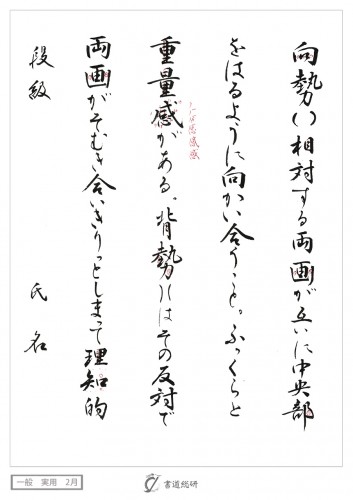 向勢()相対する両画が互いに中央部
をはるように向かい合うこと。ふっくらと
重量感がある。背勢)(はその反対で
両画がそむき合いきりっとしまって理知的
段級 氏名
一般 実用 2月
書道総研